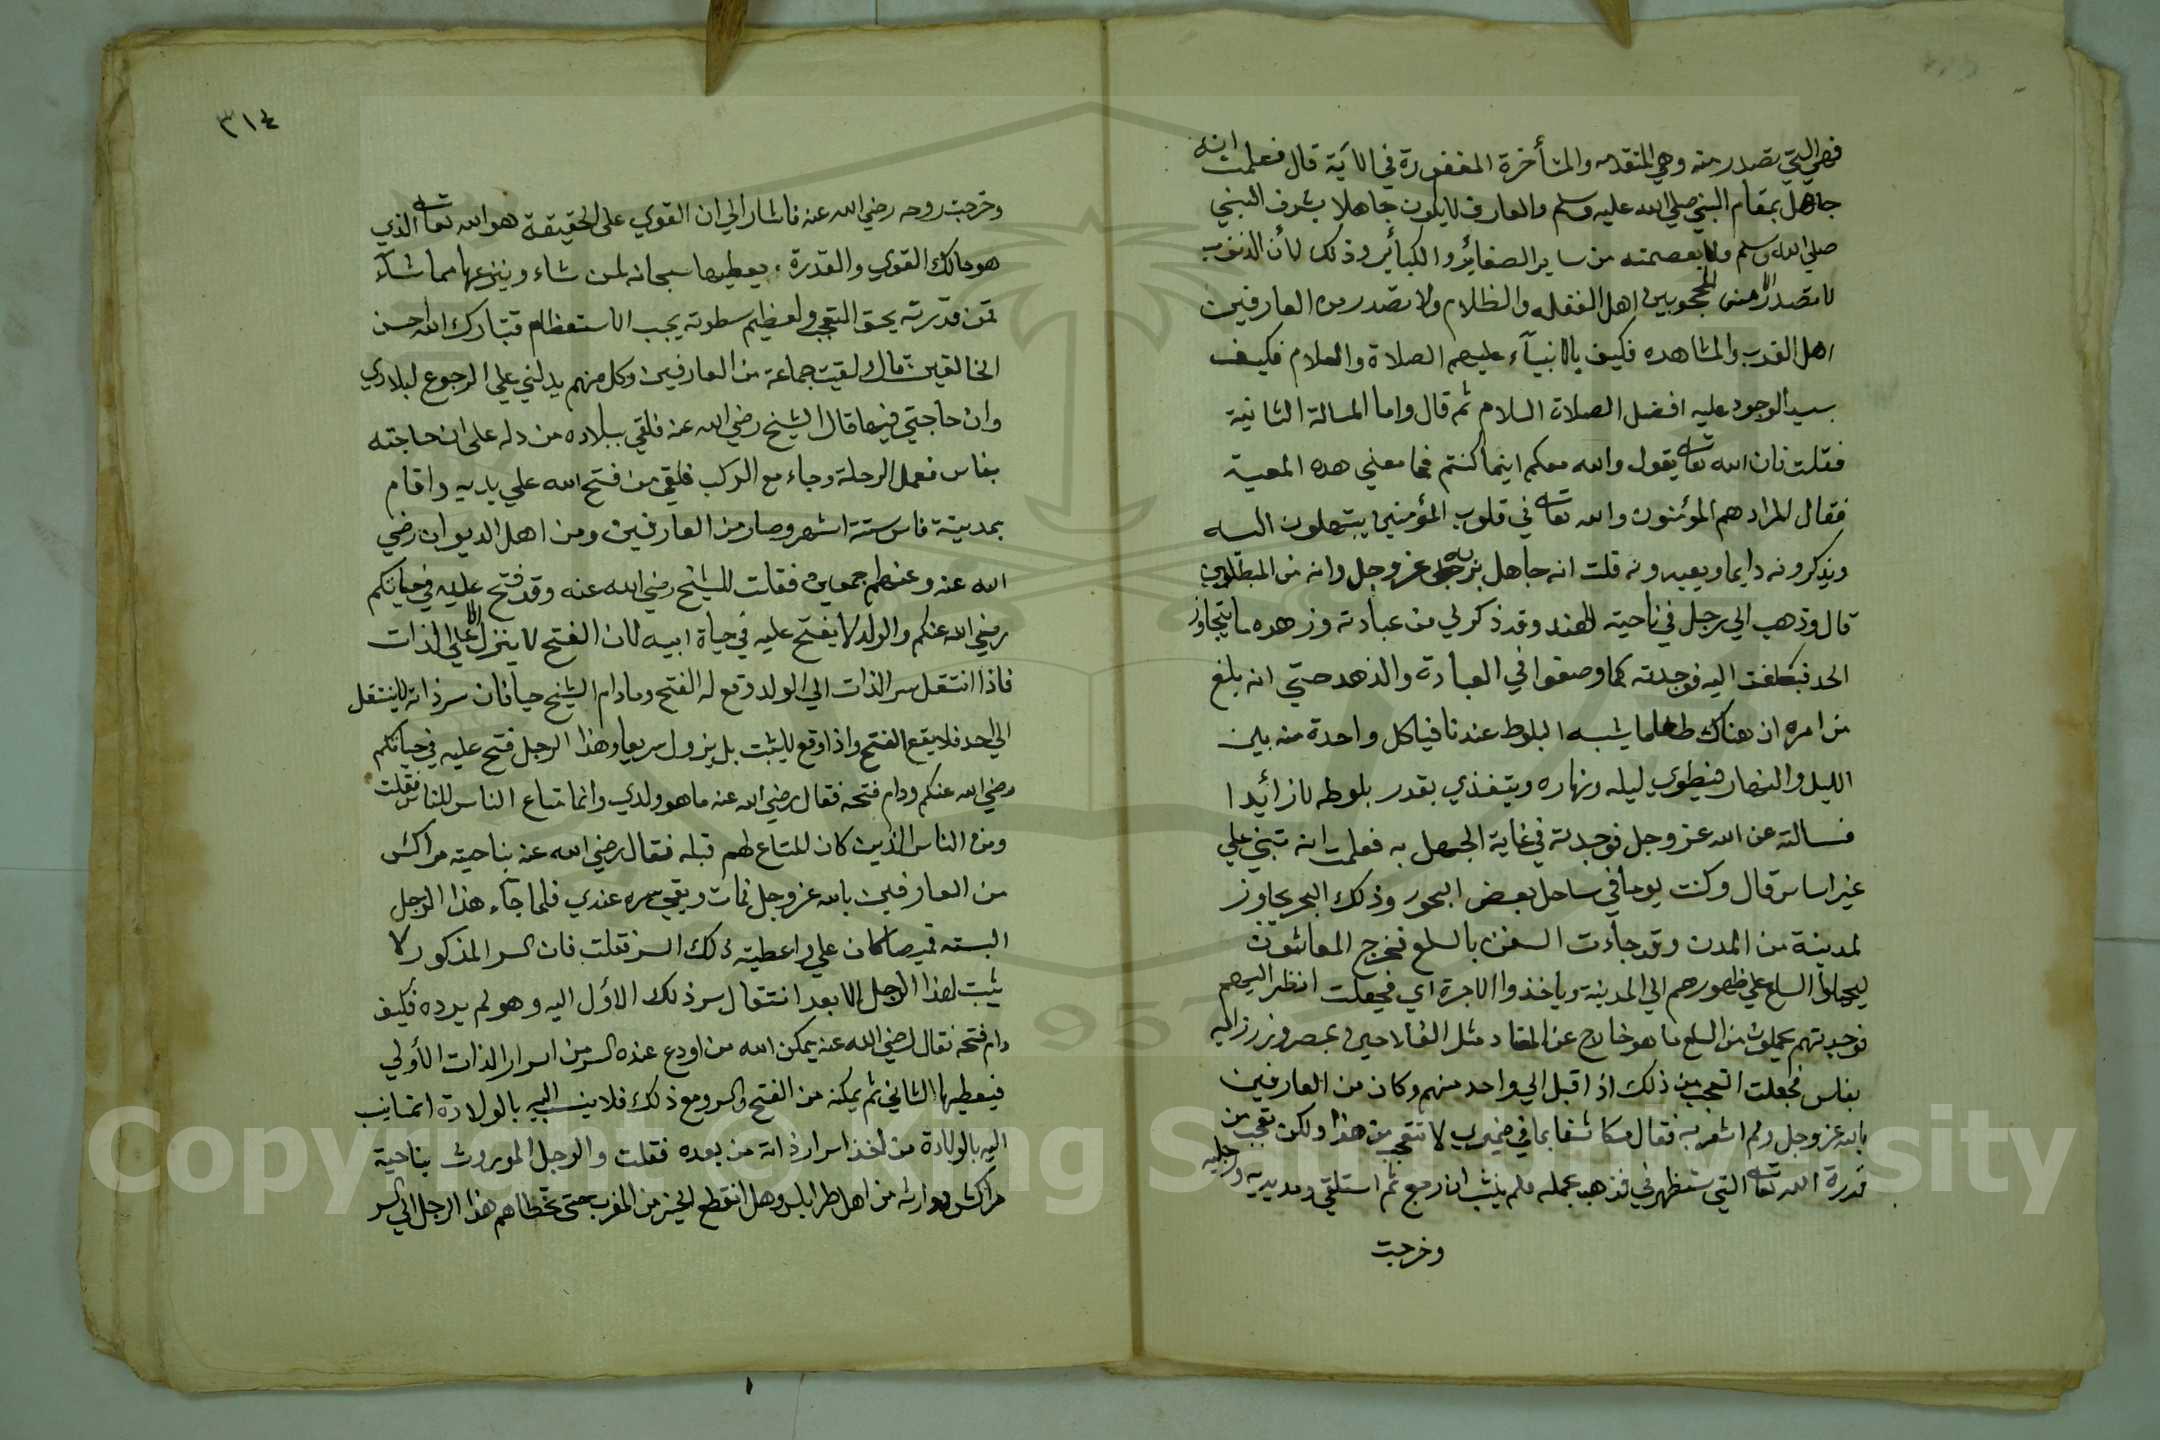 فهي التي تصدر منه وهي المتقدمه والمتأخرة المغفورة في الآية قال فعلمت انه
جاهل بمقام النبي صلي الله عليه وسلم والعارف لا يكون جاهلا بشرف النبي
صلي الله وسلم ولا بعصمته من ساير الصغائر والكبائر وذلك لأن الذنوب
لا تصدر الا من المحجوبين اهل الغفله والظلام ولا تصدر من العارفين
اهل القرب والمشاهده فكيف بالانبيآء عليهم الصلاة والسلام فكيف
بسيد الوجود عليه افضل الصلاة السلام ثم قال واما المسالة الثانية
فقلت فان الله تعالى يقول والله معكم اينما كنتم فما معني هذه المعية
فقال المراد هم المؤمنون والله تعالى في قلوب المؤمنين يبتهلون اليه
ويذكرونه دايما ويعبدونه قلت انه جاهل بربه عز وجل وانه من المبطلين
قال وذهب الي رجل في ناحية الهند وقد ذكر لي من عبادته وزهده ما يتجاوز
الحد فبلغت اليه فوجدته كما وصفوا في العبادة والزهد حتي انه بلغ
من امره ان هناك طعاما يشبه البلوط عندنا فياكل واحدة منه بين
الليل والنهار فيطوي ليله ونهاره ويتغذي بقدر بلوطه لا زائدا
فسالته عن الله عز وجل فوجدته في غاية الجهل به فعلمت انه تبني علي
غير اساس قال وكنت يوما في ساحل بعض البحور وذلك البحر يجاور
لمدينة من المدن وقد جاءت السفن بالسلع فخرج المعاشون
ليحملوا السلع علي ظهورهم الي المدينة وياخذوا الاجرة اي فجعلت انظر اليهم
فوجدتهم يحملون من السلع ما هو خارج عن المعتاد مثل الفلاحين بمصر وزرزايه
بفاس فجعلت اتعجب من ذلك اذ اقبل الي واحد منهم وكان من العارفين
بالله عز وجل ولم اشعر به فقال مكاشفا بما في ضميري لا تتعجب من هذا ولكن تعجب من
قدرة الله تعالى التي ستظهر في فذهب بحمله فلم ينشب ان رجع ثم استلقي ومد يديه ورجليه
وخرجت
٣١٤
وخرجت روحه رضي الله عنه فاشار الي ان القوي علي الحقيقة هو الله تعالى الذي
هو مالك القوي والقدرة يعطيها سبحانه لمن شاء وينزعها مما شآء
فمن قدرته يحق التعجب ولعظيم سطوته يجب الاستعظام فتبارك الله احسن
الخالقين قال ولقيت جماعة من العارفين وكل منهم يدلني علي الرجوع لبلادي
وان حاجتي فيها قال الشيخ رضي الله عنه فلقي ببلاده من دله علي ان حاجته
بفاس فعمل الرحلة وجاء مع الركب فلقي من فتح الله علي يديه واقام
بمدينة فاس ستة اشهر وصار من العارفين ومن اهل الديوان رضي
الله عنه وعنهم اجمعين فقلت للشيخ رضي الله عنه وقد فتح عليه في حياتكم
رضي الله عنكم والولد لا يفتح عليه في حياة ابيه لان الفتح لا ينزل الا علي الذات
فاذا انتقل سر الذات الي الولد وقع له الفتح وما دام الشيخ حيا فان سر ذاته لا ينتقل
الي احد فلا يقع الفتح واذا وقع لا يثبت بل يزول سريعا وهذا الرجل فتح عليه في حياتكم
رضي الله عنكم ودام فتحه فقال رضي الله عنه ما هو ولدي وانما متاع الناس للناس فقلت
ومن الناس الذين كان المتاع لهم قبله فقال رضي الله عنه بناحية مراكش
من العارفين بالله عز وجل فمات وبقي سره عندي فلما جاء هذا الرجل
البسته قميصا كان علي واعطيته ذلك السر فقلت فان السر المذكور لا
يثبت لهذا الرجل الا بعد انتقال سر ذلك الاول اليه وهو لم يرده فكيف
دام فتحه فقال رضي الله عنه يمكن الله من اودع عنده السر من اسرار الذات الأولي
فيعطيها الثاني ثم يمكنه من الفتح والسر ومع ذلك فلا ينسب اليه بالولادة انما ينسب
اليه بالولادة من اخذ اسرار ذاته من بعده فقلت والرجل الموروث بناحية
مراكش ووارثه من اهل طرابلس وهل انقطع الخير من المغرب حتي تخطاهم هذا الرجل الي السر
Copyright © King Saud University
957